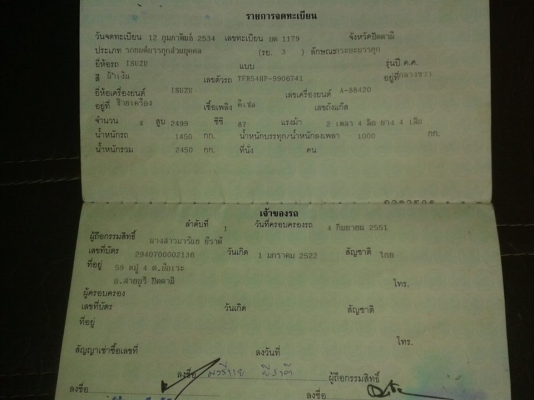 รายการจดทะเบียน
วันจดทะเบียน 12 กุมภาพันธ์ 2534 เลขทะเบียน 1179 จังหวัดปัตตานี
ประเภท รถยนต์บรรทุกส่วนบุคคล (รย. 3 ) ลักษณะ กระบะบรรทุก
ยี่ห้อรถ ISUZU แบบ รุ่นปี ค.ศ.
สี น้ำเงิน เลขตัวรถ TFR54HF-9906741 อยู่ที่
ยี่ห้อเครื่องยนต์ ISUZU เลขเครื่องยนต์ A-88420
อยู่ที่ เชื้อเพลิง ดีเซล เลขถังแก๊ส
จำนวน 4 สูบ 2499 ซีซี 87 แรงม้า 2 เพลา 4 ล้อ ยาง 4 เส้น
น้ำหนักรถ 1450 กก. น้ำหนักบรรทุก/น้ำหนักลงเพลา 1000 กก.
น้ำหนักรวม 2450 กก. ที่นั่ง คน
เจ้าของรถ
ลำดับที่ 1 วันที่ครอบครองรถ 4 กันยายน 2551
ผู้ถือกรรมสิทธิ์ นางสาว
เลขที่บัตร 2940700002136 วันเกิด 1 มกราคม 2522 สัญชาติ ไทย
ที่อยู่ 59 หมู่ 4
อ.สายบุรี ปัตตานี โทร.
ผู้ครอบครอง
เลขที่บัตร วันเกิด สัญชาติ
ที่อยู่
โทร.
สัญญาเช่าซื้อเลขที่ ลงวันที่
ลงชื่อ ผู้ถือกรรมสิทธิ์
ลงชื่อ ลงชื่อ